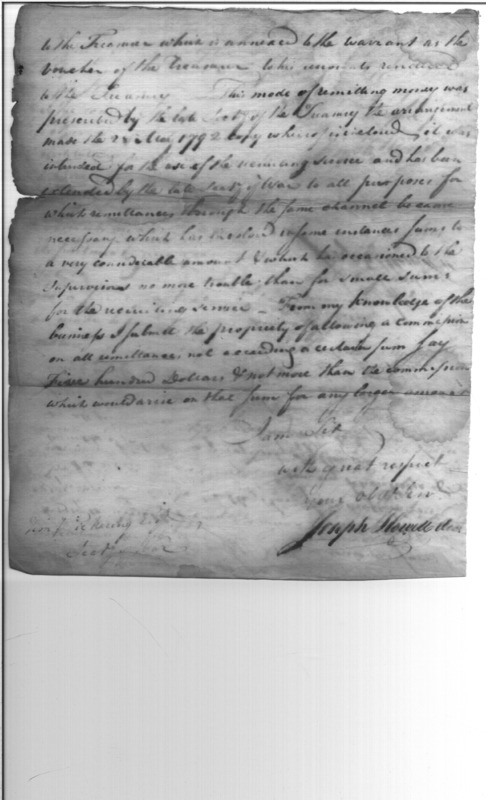 to the Treasurer which is annexed to the warrant as the
voucher of the Treasurer to his accounts rendered
to the Treasury This mode of remitting money was
prescribed by the late Secty of the Treasury the arrangement
made the 2 May 1792 copy whereof is inclosed it was
intended for the use of the recruiting service and has been
extended by the late Secty of War to all purposes for
which remittances through the same channel became
necessary which has involved in some instances sums to
a very considerable amount & which has occasioned to the
Supervisors no more trouble than for small sums
for the recruiting service – From my knowledge of the
business I submit the propriety of allowing a commission
on all remittances not exceeding a certain sum say
Five hundred Dollars & not more than the commission
which would arise on that sum for any larger amount
I am Sir
with great respect
your obt Serv
Joseph Howell
Pickering
Secty War